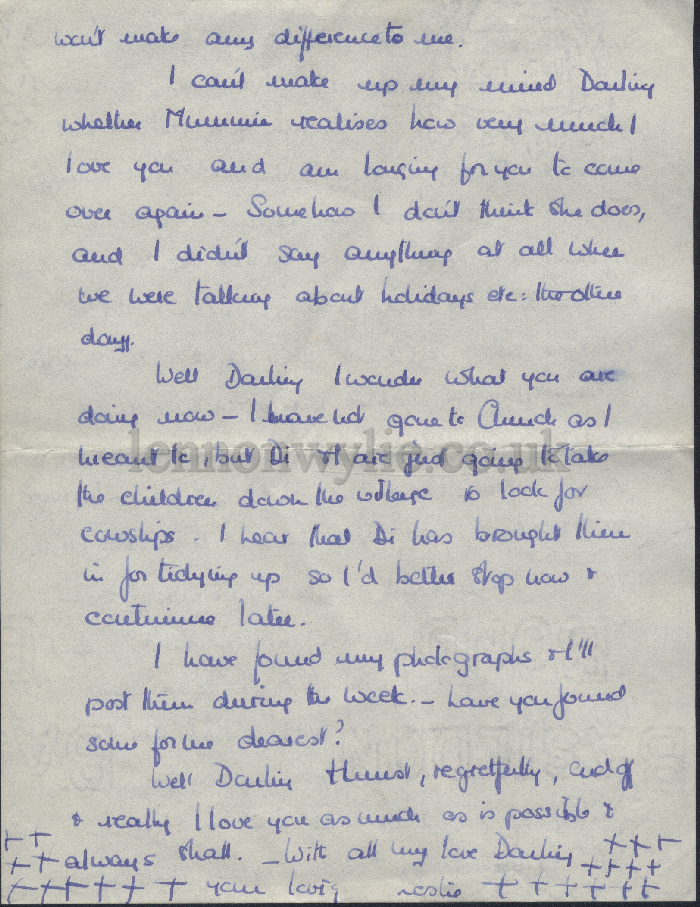 won't make any difference to me.
I can't make up my mind Darling
whether Mummie realises how very much I
love you and am longing for you to come
over again – Somehow I don't think she does,
and I didn't say anything at all when
we were talking about holidays etc: the other
day.
Well Darling I wonder what you are
doing now – I have not gone to Church as I
meant to, but Di & I are just going to take
the children down the village to look for
cowslips. I hear that Di has brought them
in for tidying up so I'd better stop now &
continue later.
I have found my photographs & I'll
post them during the week. – have you found
some for me dearest?
Well Darling I must, regretfully, end
& really I love you as much as is possible &
always shall. – With all my love Darling
your loving Leslie
lennonwylie.co.uk